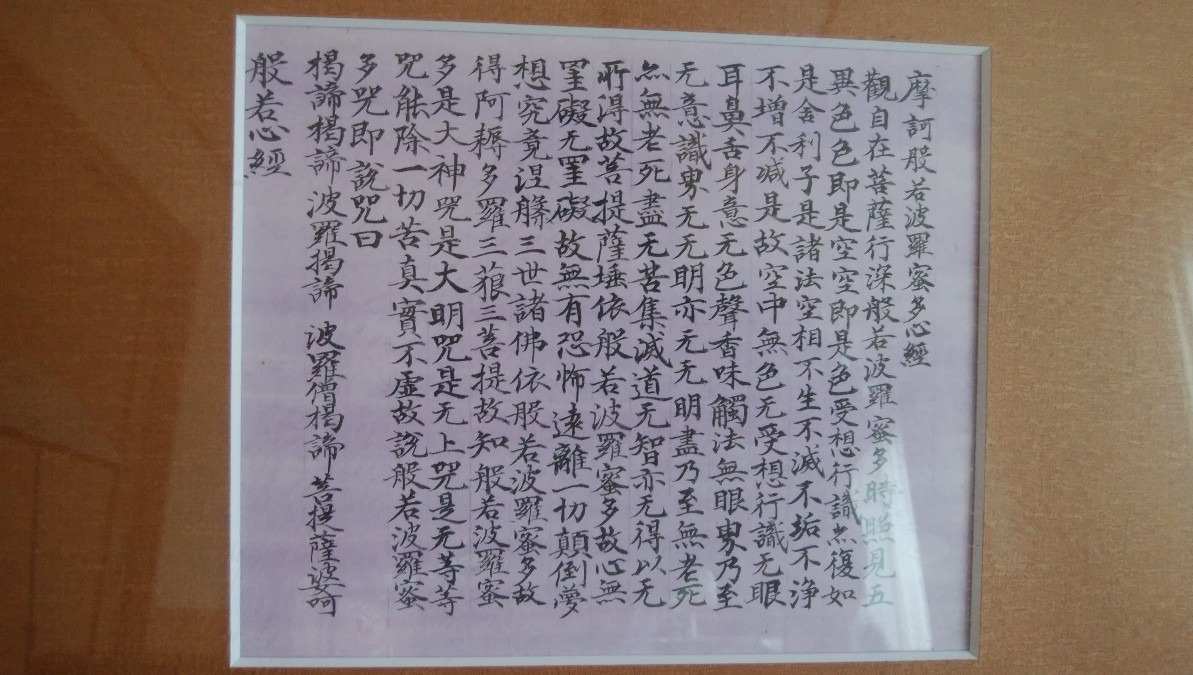 摩訶般若波羅蜜多心經
觀自在菩薩行深般若波羅蜜多時照見五
異色色即是空空即是色受想行識亦復如
是舍利子是諸法空相不生不滅不垢不淨
不增不減是故空中無色无受想行識无眼
耳鼻舌身意无色聲香味觸法無眼界乃至
无意識界无无明亦无无明盡乃至無老死
亦無老死盡无苦集滅道无智亦无得以无
所得故菩提薩埵依般若波羅蜜多故心無
罣礙无罣礙故無有恐怖遠離一切顛倒夢
想究竟涅槃三世諸佛依般若波羅蜜多故
得阿耨多羅三藐三菩提故知般若波羅蜜
多是大神咒是大明咒是无上咒是无等等
咒能除一切苦真實不虛故說般若波羅蜜
多咒即說咒曰
揭諦揭諦 波羅揭諦 波羅僧揭諦 菩提薩婆呵
般若心經